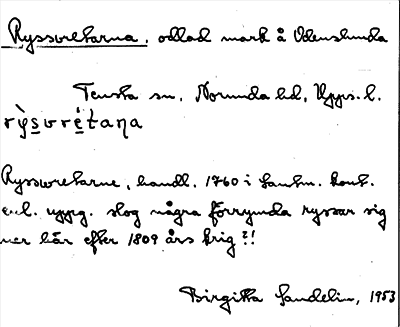 Ryssvretarna, odlad mark å Odenslunda
Tensta sn, Norunda hd, Upps. l.
rỳsvrétaṇa
Ryssvretarne, handl. 1760 i lantm. kont.
enl. uppg. slog några förrymda ryssar sig
ner här efter 1809 års krig?!
Birgitta Sandelin, 1953